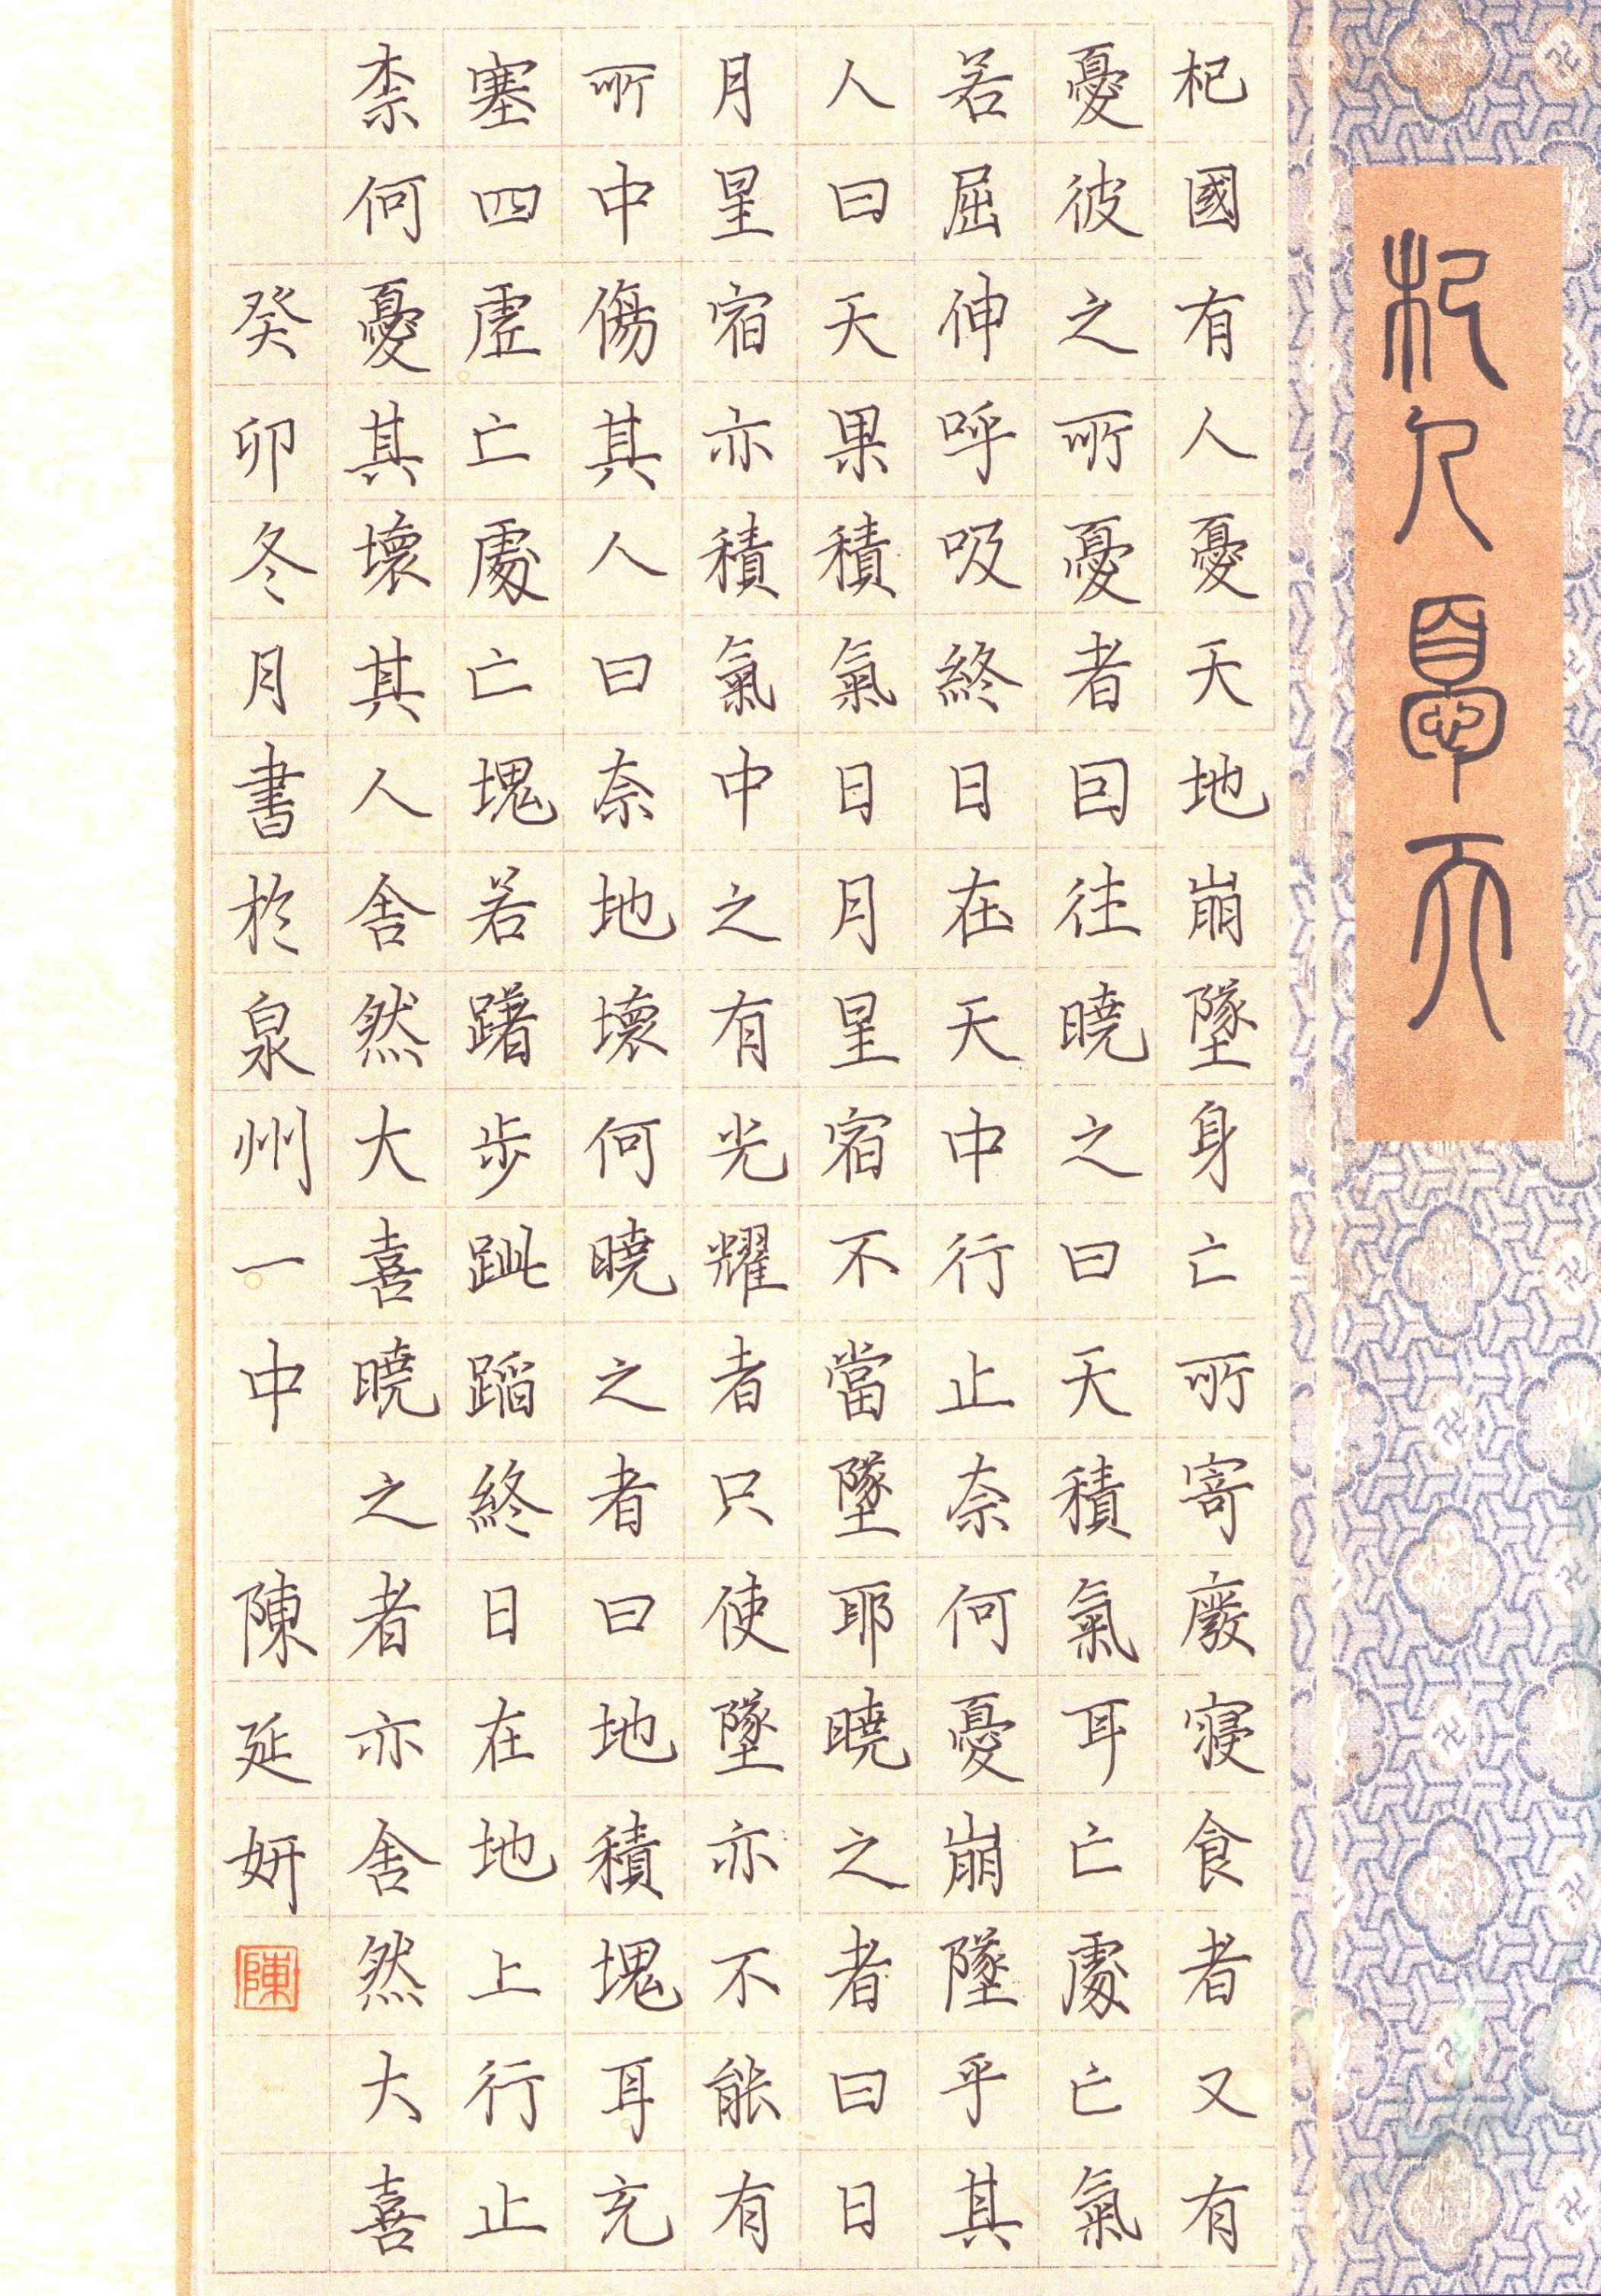 杞人憂天
杞國有人憂天地崩墜身亡所寄廢寢食者又有
憂彼之所憂者因往曉之曰天積氣耳亡處亡氣
若屈伸呼吸終日在天中行止奈何憂崩墜乎其
人曰天果積氣日月星宿不當墜耶曉之者曰日
月星宿亦積氣中之有光耀者只使墜亦不能有
所中傷其人曰奈地壞何曉之者曰地積塊耳充
塞四虛亡處亡塊若躇步跐蹈終日在地上行止
柰何憂其壞其人舍然大喜曉之者亦舍然大喜
癸卯冬月書於泉州一中 陳延妍
陳